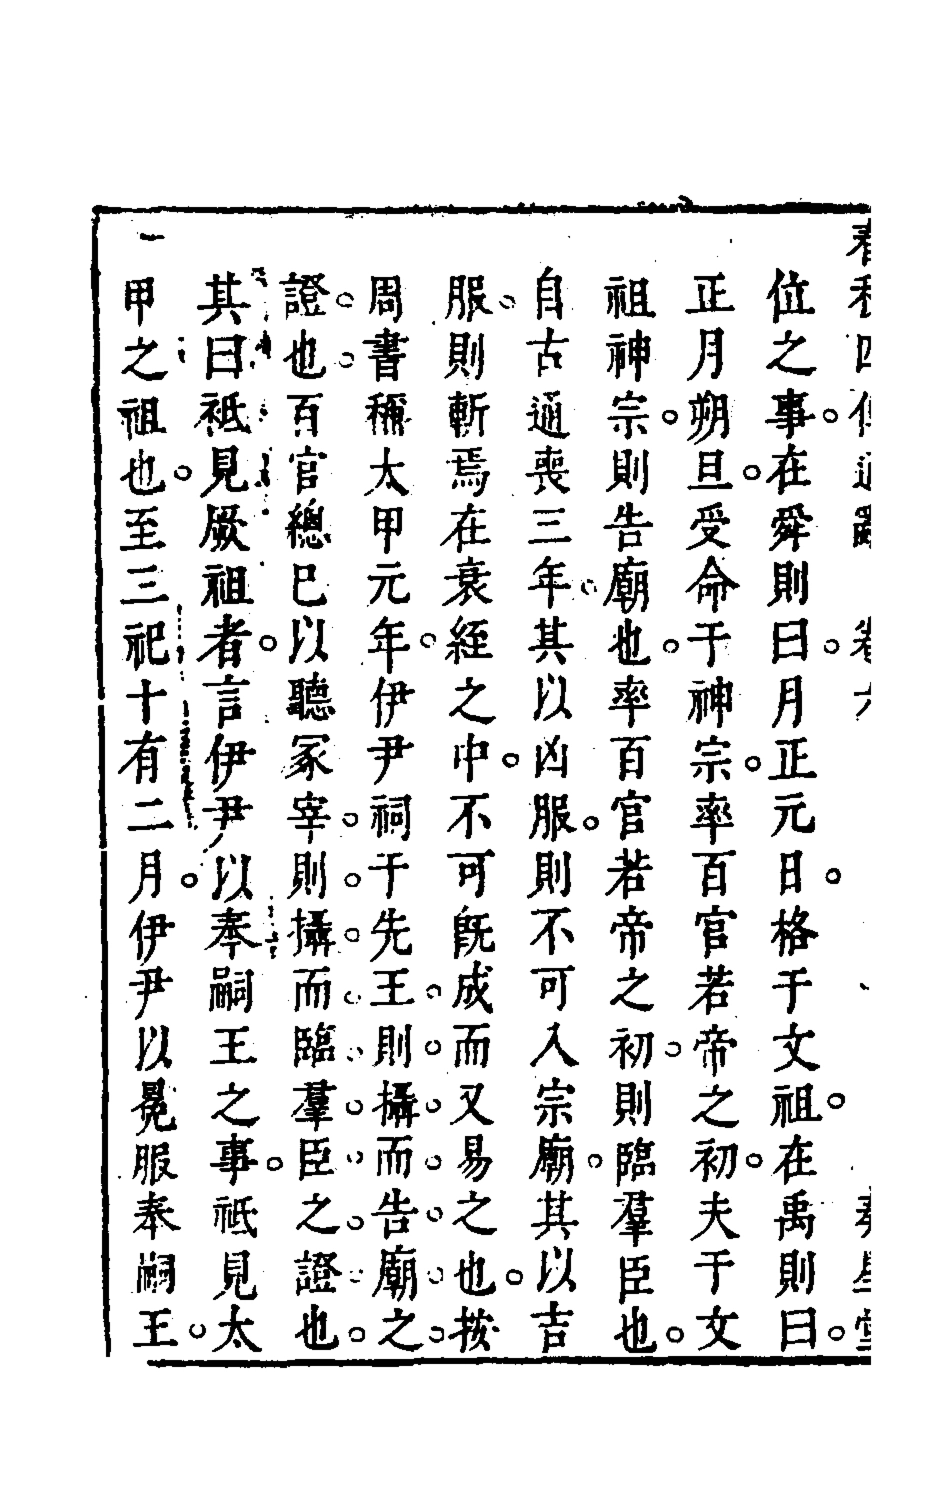 位之事。在舜則曰。月正元日。格于文祖。在禹則曰。
正月朔旦。受命于神宗。率百官若帝之初。夫于文
祖神宗。則告廟也。率百官若帝之初。則臨羣臣也。
自古通喪三年。其以凶服。則不可入宗廟。其以吉
服。則斬焉在衰絰之中。不可旣成而又易之也。按
周書稱太甲元年。伊尹祠于先王。則攝而告廟之
證也。百官總已以聽冢宰。則攝而臨羣臣之證也。
其曰祗見厥祖者。言伊尹以奉嗣王之事。祗見太
甲之祖也。至三祀十有二月。伊尹以冕服奉嗣王。